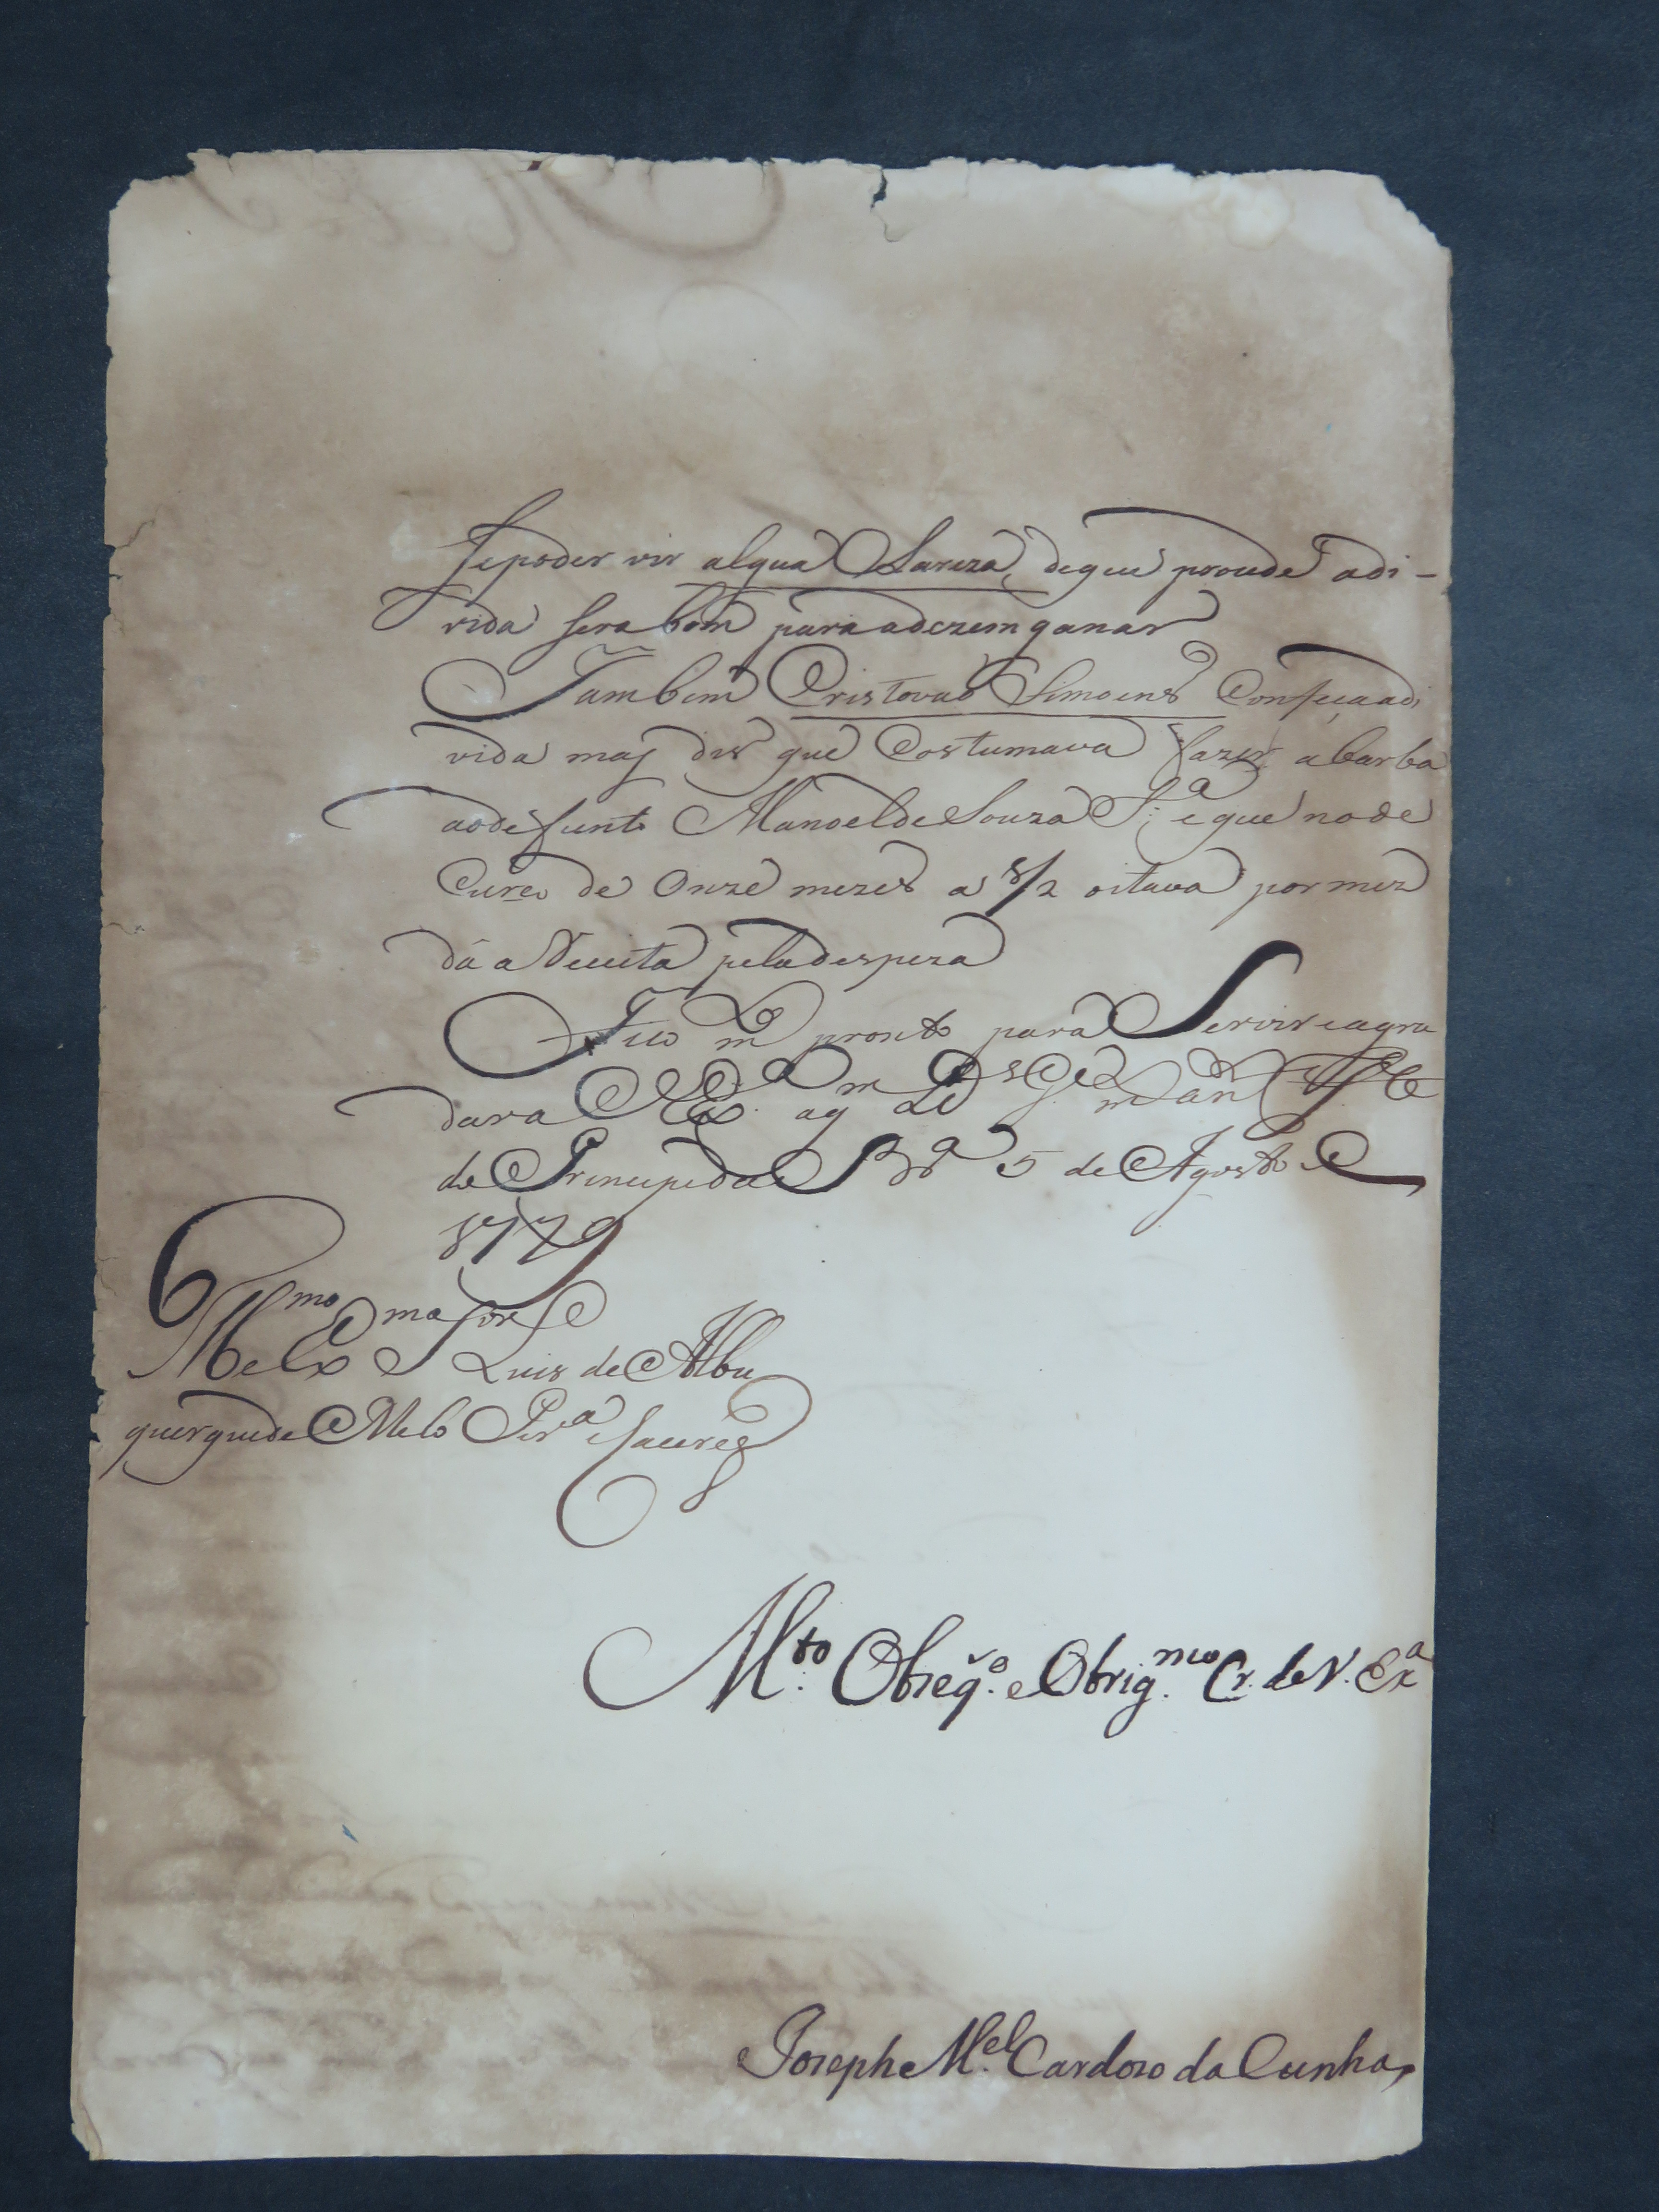 sepoder vir algua Clareza, deque procede adi-
vida sera bom para adezemganar
Tambem Cristovaõ Simoens Confeça adi
vida mas dis que Costumava fazer abarba
aodefunto Manoel de Souza S.ª e que no de
Curço de Onze mezes a 8/2 oitava por mez
dá a Receita pela despeza
Fico m pronto para Servir e agra
dar a V Ex.ª aq m D.s G.e m an
de Principe da B.ª 5 de Agosto de
1779
Ill mo e Ex mo Snr Luis de Albu
querque de Melo Per.ª e Caceres
M.to Obzeq.o e Obrig.mo Cr. de V. Exª
Joseph M.el Cardozo da Cunha